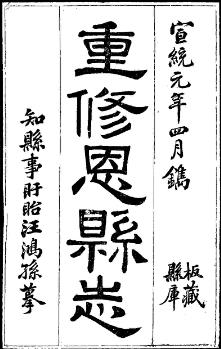 宣統元年四月鐫
板藏
縣庫
重修恩縣志
知縣事盱眙汪鴻孫摹